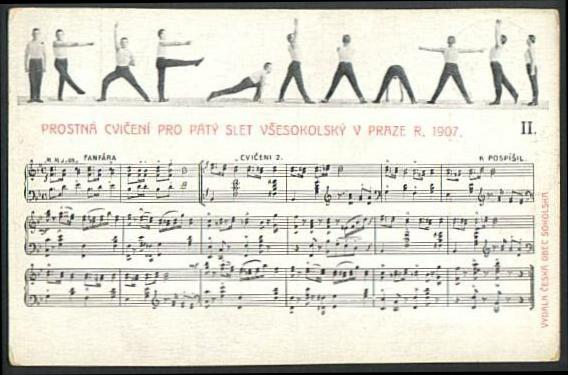 PROSTNÁ CVIČENÍ PRO PÁTÝ SLET VŠESOKOLSKÝ V PRAZE R. 1907.
II.
FANFÁRA
CVIČENI 2.
K POSPÍŠIL.
VYDALA ČESKÁ OBEC SOKOLSKÁ